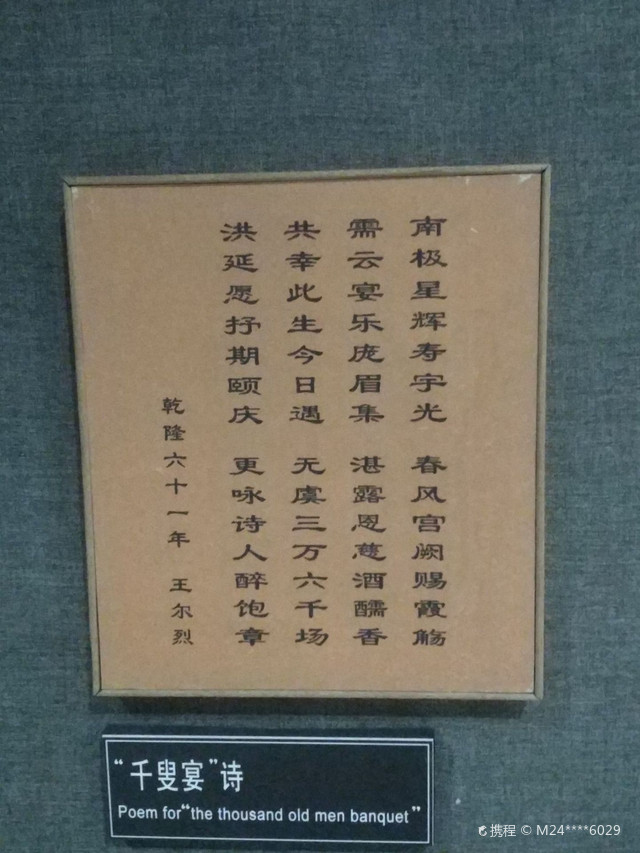 南极星辉寿宇光 春风宫阙赐霞觞
需云宴乐庞眉集 湛露恩慈酒醹香
共幸此生今日遇 无虞三万六千场
洪延愿抒期颐庆 更咏诗人醉饱章
乾隆六十一年 王尔烈
“千叟宴”诗
Poem for“the thousand old men banquet”
携程 © M24****6029